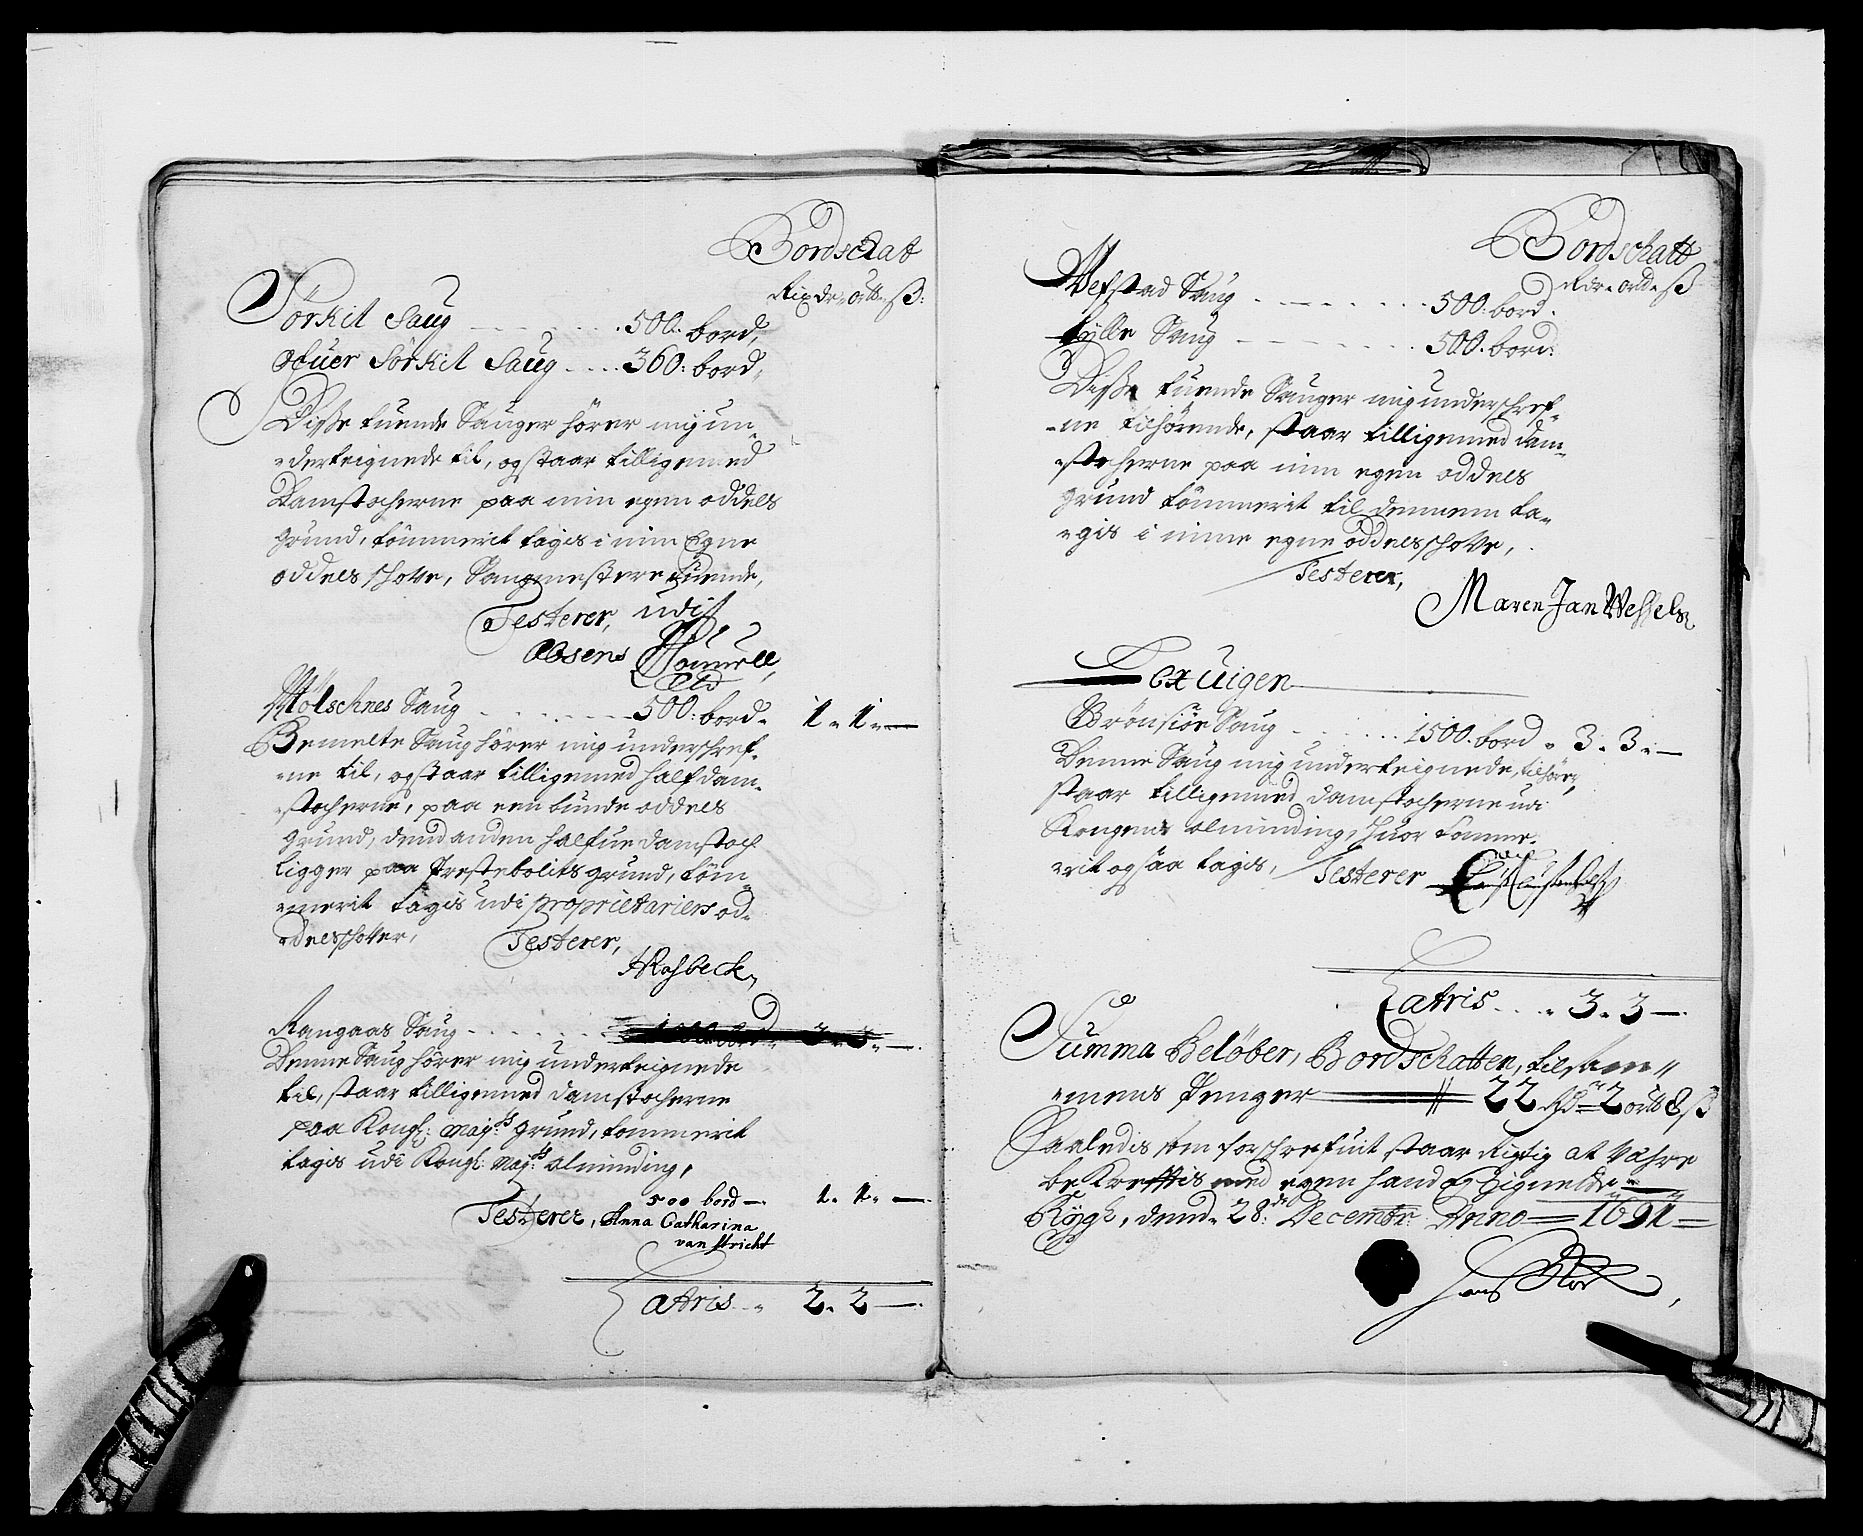 Bordschat
Rixdr ortt ß:
Sörkil Saug 500: bord,
Ofuer Sörkil Saug 360: bord,
Disse tuende Sauger hörer mig un-
derteignede til, og staar tilligemed
Damstocherne paa min egen oddels
grund, tömmerit tagis i min Egne
oddels schove, Saugmestere tuende,
Testerer, udi
Absens
Mölschnes Saug 500: bord 1 - 1 -
Bemelte Saug hörer mig underschref-
ne til, og staar tilligemed half dam-
stocherne, paa een bunde oddels
grund, dend anden halfue damstoch
ligger paa Prestebolits grund, töm-
merit tagis udi proprietariers od-
delsschover,
Testerer,
HRasbeck
Rangaas Saug 1000 bord 3 - 3 -
Denne Saug hörer mig underteignede
til, staar tilligemed damstocherne
paa Kongl: Maj:ts grund, tömmerit
tagis udi Kongl: Maj:ts alminding,
500 bord 1 - 1 -
Testerer, Anna Catharina
van stricht
Latris 2 - 2 -
Bordschatt
Rdr ortt ß
Wefstad Saug 500: bord.
Fylle Saug 500. bord:
Disse tuende Sauger mig underschref-
ne tilhörende, staar tilligemed dam-
stocherne paa min egen oddels
grund tömmerit til dennem ta-
gis i mine egne oddelsschove,
Testerer,
Maren Jan Wessels
Loxuigen
Brönsiör Saug 1500. bord 3 - 3 -
Denne Saug mig underteignede, tilhörer,
staar tilligemed damstocherne ua
Kongens alminding, huor tömme-
rit og saa tagis, Testerer
Latris 3 - 3 -
Summa Belöber, Bordschatten, til sam-
mens Penger 22 Rdr 2 ortt 8 ß
Saaledis som forschrefuit staar Rigtig at Vahre
bekreftis med egen hand og Signette
Rygh, dend 28:de Decembr: Anno 1691